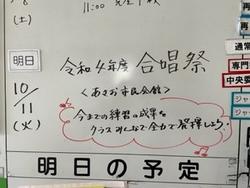 8
(土)
11:00
明日
令和4年度 合唱祭
<あさお市民会館>
10/11
(火)
今までの練習の成果を
クラスみんなで全力で発揮しよう。
明日の予定
通常
専門
中央委